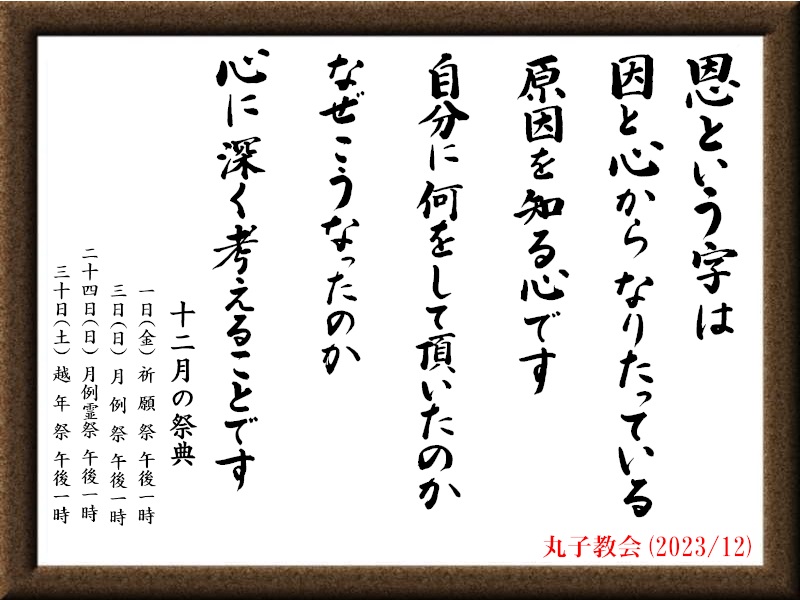 恩という字は
因と心からなりたっている
原因を知る心です
自分に何をして頂いたのか
なぜこうなったのか
心に深く考えることです
十二月の祭典
一日(金)祈願祭 午後一時
三日(日)月例祭 午後一時
二十四日(日)月例霊祭 午後一時
三十日(土)越年祭 午後一時
丸子教会(2023/12)